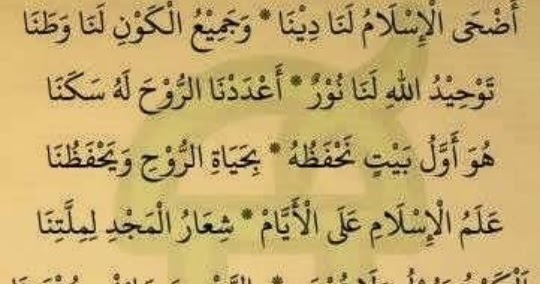 أَضْحَى الْإِسْلَامُ لَنَا دِيْنَا * وَجَمِيْعُ الْكَوْنِ لَنَا وَطَنَا
تَوْحِيْدُ اللهِ لَنَا نُوْرٌ * أَعْدَدْنَا الرُّوْحَ لَهُ سَكَنَا
هُوَ أَوَّلُ بَيْتٍ نَحْفَظُهُ * بِحَيَاةِ الرُّوْحِ وَيَحْفَظُنَا
عَلَمُ الْإِسْلَامِ عَلَى الْأَيَّامْ * شِعَارُ الْمَجْدِ لِمِلَّتِنَا